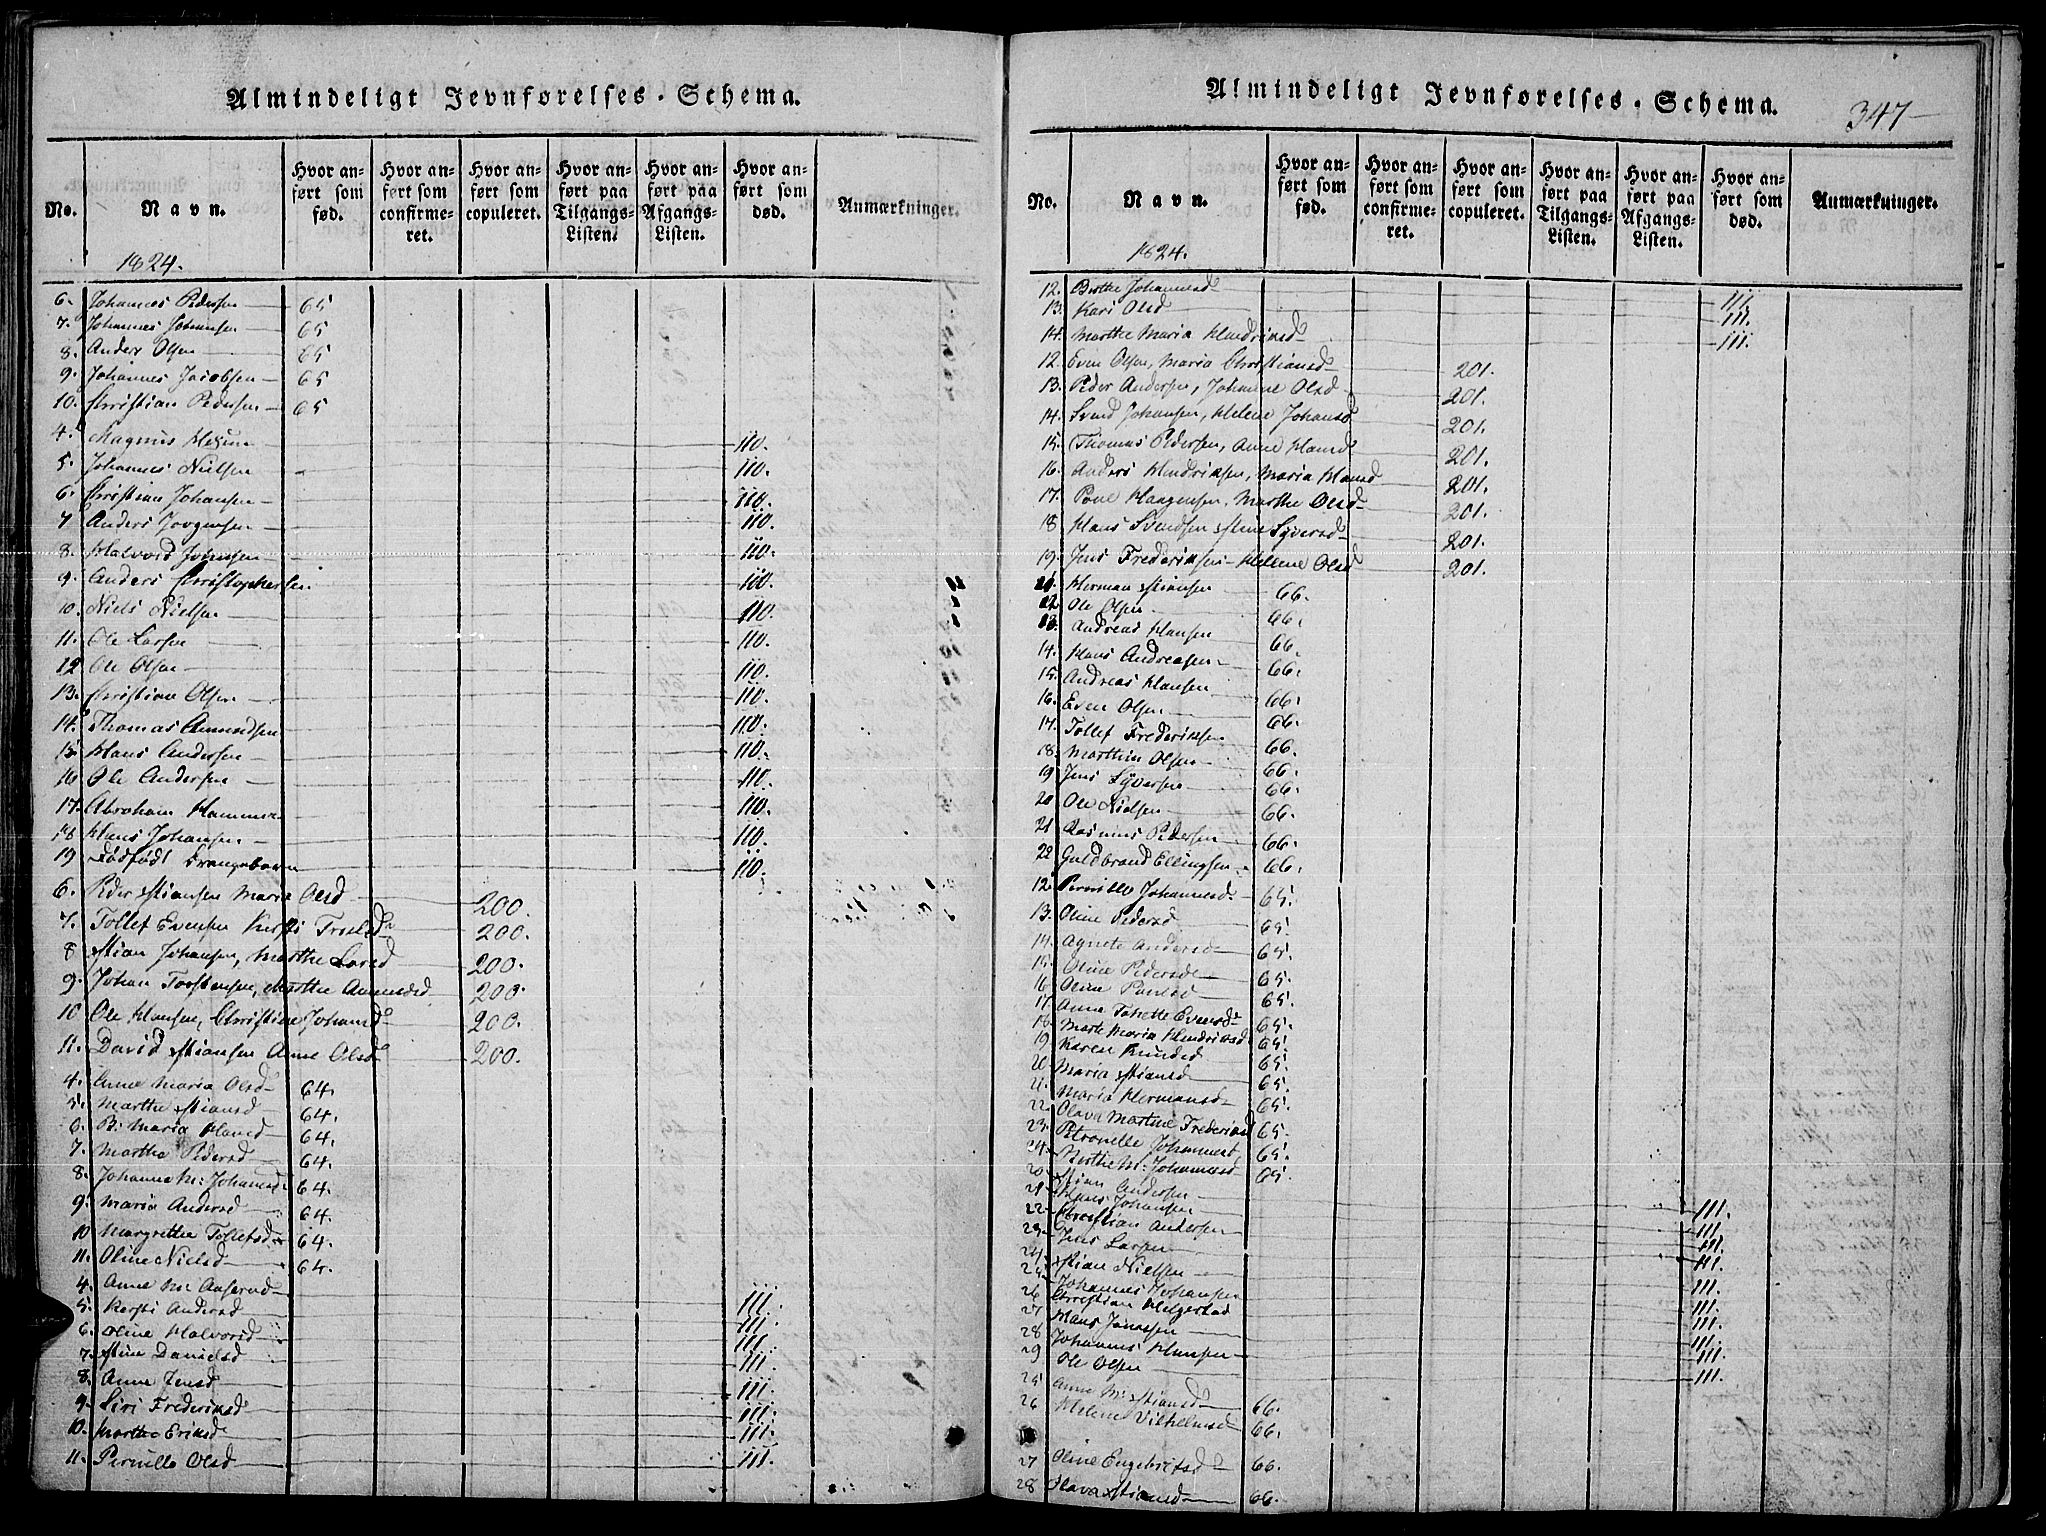 Almindeligt Jevnførelses-Schema.
No.
Navn.
Hvor anført som fød.
Hvor anført som confirmeret.
Hvor anført som copuleret.
Hvor anført paa Tilgangs-Listen.
Hvor anført paa Afgangs-Listen.
Hvor anført som død.
Anmærkninger.
1824.
6. Johannes Pedersen 65
7. Johannes Johansen 65
8. Anders Olsen 65
9. Johannes Jacobsen 65
10. Christian Pedersen 65
4. Magnus 110.
5. Johannes Nielsen 110.
6. Christian Johansen 110.
7. Anders Jørgensen 110.
8. Halvord Johnsen 110.
9. Anders Christophersen 110.
10. Niels Nielsen 110.
11. Ole Larsen 110.
12 Ole Olsen 110.
13. Christian Olsen 110.
14. Thomas Amundsen 110.
15. Hans Andersen 110.
16 Ole Andersen 110.
17. Abraham Hammer 110.
18 Hans Johansen 110.
19 Dødfødt Drengebarn 110.
6. Peder Stiansen Maria Olsd 200.
7. Tollef Evensen Kersti 200.
8 Stian Johansen, Marthe Larsd 200.
9. Johan Torstensen, Marthe Amundsd 200.
10 Ole Hansen, Christine Johansd 200.
11. David Stiansen Anne Olsd 200.
4. Anne Maria Olsd 64.
5. Marthe Stiansd 64.
6 B: Maria Hansd 64.
7. Marthe Pedersd 64.
8. Johanne M: Johansd 64.
9. Maria Andersd 64.
10 Margrethe Tollefsd 64.
11. Oline Nielsd 64.
4. Anne M: 111.
5. Kersti Andersd 111.
6. Oline Halvorsd 111.
7. Stine Danielsd 111.
8. Anne Jensd 111.
9. Siri Frederiksd 111.
10. Marthe Eriksd 111.
11. Pernille Olsd 111.
Almindeligt Jevnførelses-Schema.
347
No.
Navn.
Hvor anført som fød.
Hvor anført som confirmeret.
Hvor anført som copuleret.
Hvor anført paa Tilgangs-Listen.
Hvor anført paa Afgangs-Listen.
Hvor anført som død.
Anmærkninger.
1824.
12. Berthe Johannesd 111.
13. Kari Olsd 111.
14. Marthe Maria Hendriksd 111.
12. Even Olsen, Maria Christiansd 201.
13. Peder Andersen, Johanne Olsd 201.
14. Svend Johansen, Helene Johansd 201.
15. Thomas Pedersen, Anne Hansd 201.
16. Anders Hendriksen, Maria Hansd 201.
17. Poul Haagensen, Marthe Olsd 201.
18 Hans Svendsen Stine Syversd 201.
19. Jens Frederiksen Helene Olsd 201.
Herman Stiansen 66.
12 Ole Olsen 66.
13. Andreas Hansen 66.
14. Hans Andreasen 66.
15. Andreas Hansen 66.
16. Even Olsen 66.
17. Tollef Frederiksen 66.
18. Marthin Olsen 66.
19 Jens Syversen 66.
20 Ole Nielsen 66.
21 Rasmus Pedersen 66.
22 Guldbrand Ellingsen 66.
12. Pernille Johannesd 65.
13. Oline Pedersd 65.
14. Agnete Andersd 65.
15. Oline Pedersd 65.
16 Oline Poulsd 65.
17. Anne Evensd 65.
18. Marte Maria Hendriksd 65.
19 Karen Knudsd 65.
20 Maria Stiansd 65.
21. Maria Hermansd 65.
22. Olava Martine Frederiksd 65.
23. Petronelle Johannesd 65.
24. Berthe M: Johannesd 65.
20. Stian Andersen 111.
21. Hans Johansen 111.
22 Christian Andersen 111.
23. Jens Larsen 111.
24. Stian Nielsen 111.
25. Johannes Johansen 111.
26 Christian Helgestad 111.
27 Hans Jonassen 111.
28 Johannes Hansen 111.
29 Ole Olsen 111.
25 Anne M: Stiansd 66.
26 Helene Vilhelmsd 66.
27 Oline Engebretsd 66.
28 Olava Stiansd 66.